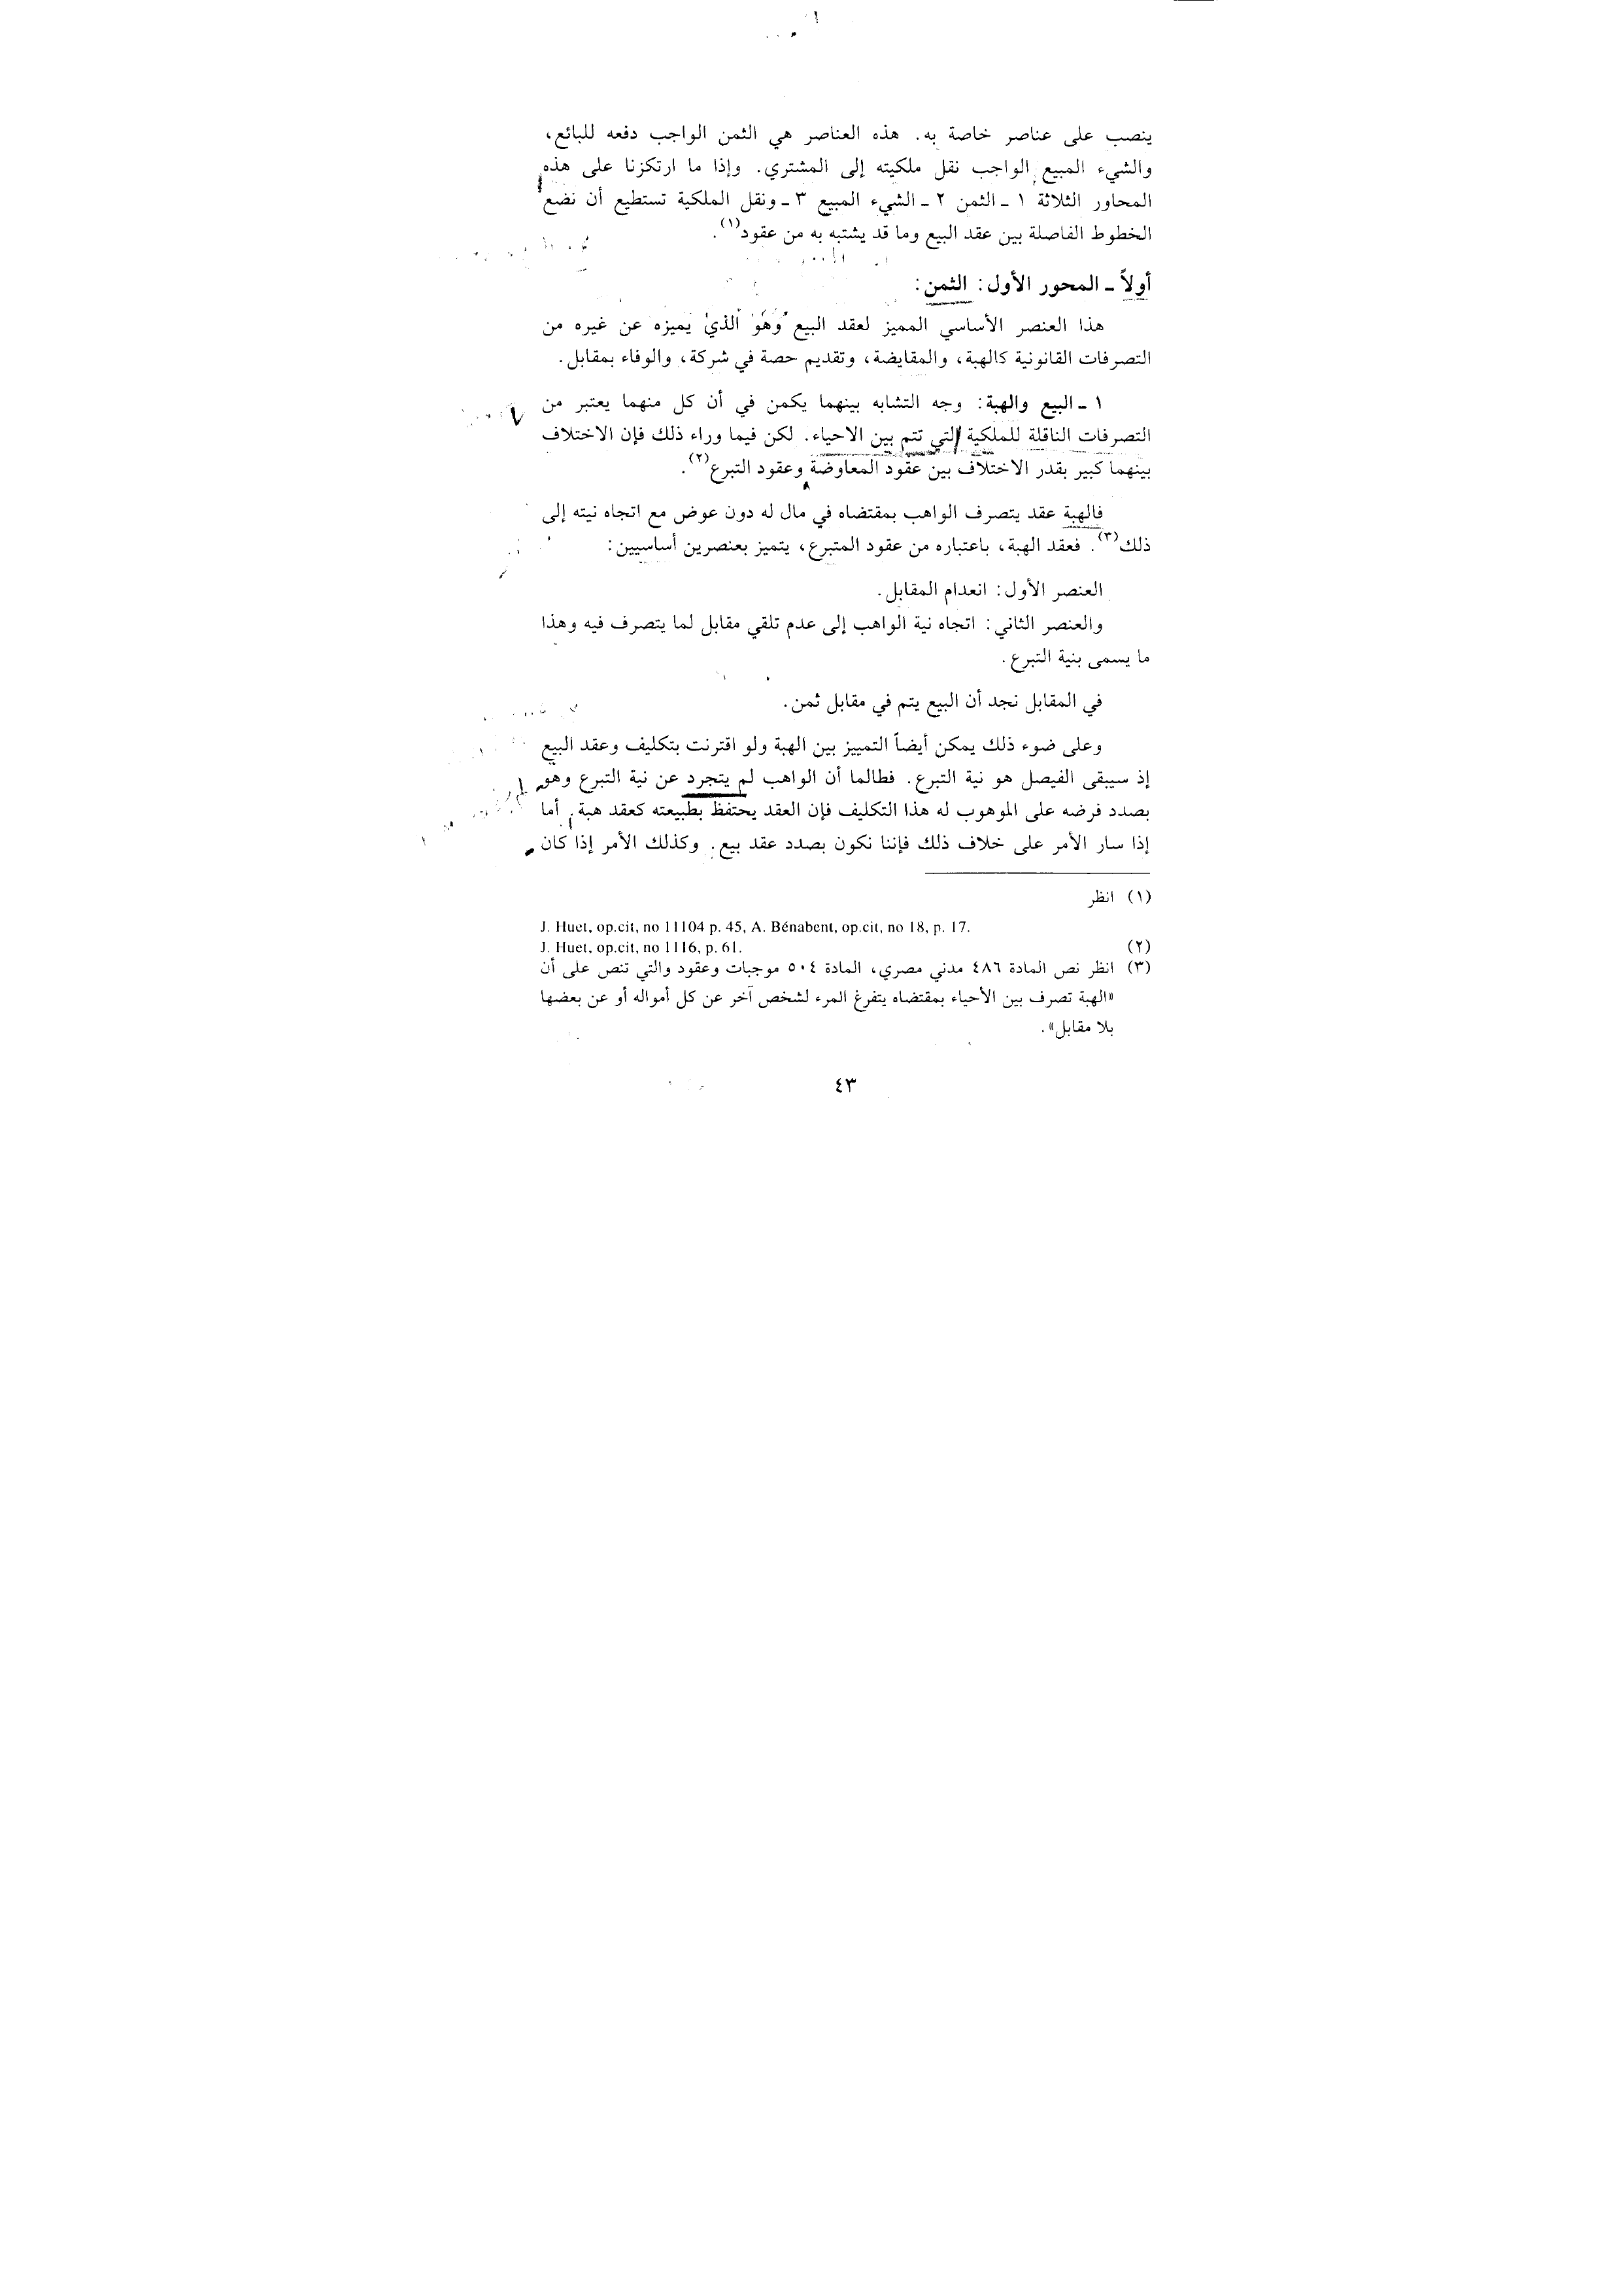 ينصب على عناصر خاصة به. هذه العناصر هي الثمن الواجب دفعه للبائع،
والشيء المبيع الواجب نقل ملكيته إلى المشتري. وإذا ما ارتكزنا على هذه
المحاور الثلاثة ١ ـ الثمن ٢ ـ الشيء المبيع ٣ ـ ونقل الملكية تستطيع أن نضع
الخطوط الفاصلة بين عقد البيع وما قد يشتبه به من عقود(١).
أولاً ـ المحور الأول: الثمن:
هذا العنصر الأساسي المميز لعقد البيع وهو الذي يميزه عن غيره من
التصرفات القانونية كالهبة، والمقايضة، وتقديم حصة في شركة، والوفاء بمقابل.
١ ـ البيع والهبة: وجه التشابه بينهما يكمن في أن كل منهما يعتبر من
التصرفات الناقلة للملكية التي تتم بين الاحياء. لكن فيما وراء ذلك فإن الاختلاف
بينهما كبير بقدر الاختلاف بين عقود المعاوضة وعقود التبرع(٢).
فالهبة عقد يتصرف الواهب بمقتضاه في مال له دون عوض مع اتجاه نيته إلى
ذلك(٣). فعقد الهبة، باعتباره من عقود المتبرع، يتميز بعنصرين أساسيين:
العنصر الأول: انعدام المقابل.
والعنصر الثاني: اتجاه نية الواهب إلى عدم تلقي مقابل لما يتصرف فيه وهذا
ما يسمى بنية التبرع.
في المقابل نجد أن البيع يتم في مقابل ثمن.
وعلى ضوء ذلك يمكن أيضاً التمييز بين الهبة ولو اقترنت بتكليف وعقد البيع
إذ سيبقى الفيصل هو نية التبرع. فطالما أن الواهب لم يتجرد عن نية التبرع وهو
بصدد فرضه على الموهوب له هذا التكليف فإن العقد يحتفظ بطبيعته كعقد هبة. أما
إذا سار الأمر على خلاف ذلك فإننا نكون بصدد عقد بيع. وكذلك الأمر إذا كان
(١) انظر
J. Huet, op.cit, no 11104 p. 45, A. Bénabent, op.cit, no 18, p. 17.
(٢) J. Huet, op.cit, no 1116, p. 61.
(٣) انظر نص المادة ٤٨٦ مدني مصري، المادة ٥٠٤ موجبات وعقود والتي تنص على أن
«الهبة تصرف بين الأحياء بمقتضاه يتفرغ المرء لشخص آخر عن كل أمواله أو عن بعضها
بلا مقابل».
٤٣